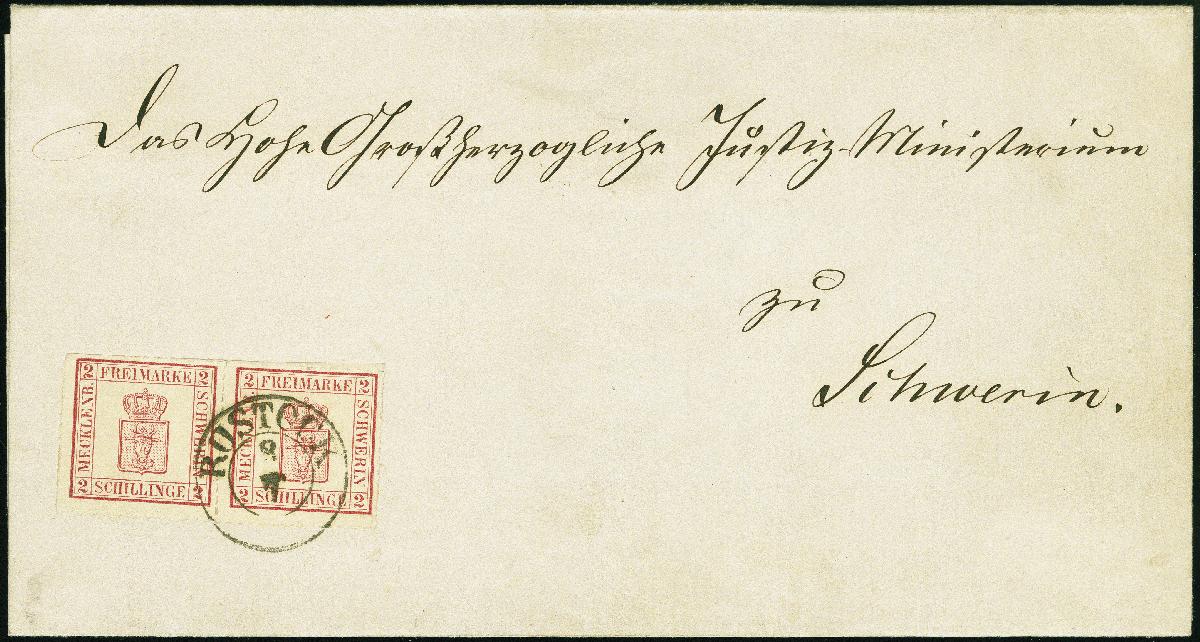 Das Hohe Großherzogliche Justiz-Ministerium
zu
Schwerin.
2 FREIMARKE 2
MECKLENB.
SCHWERIN
2 SCHILLINGE 2
2 FREIMARKE 2
MECKLENB.
SCHWERIN
2 SCHILLINGE 2
ROSTOCK
9